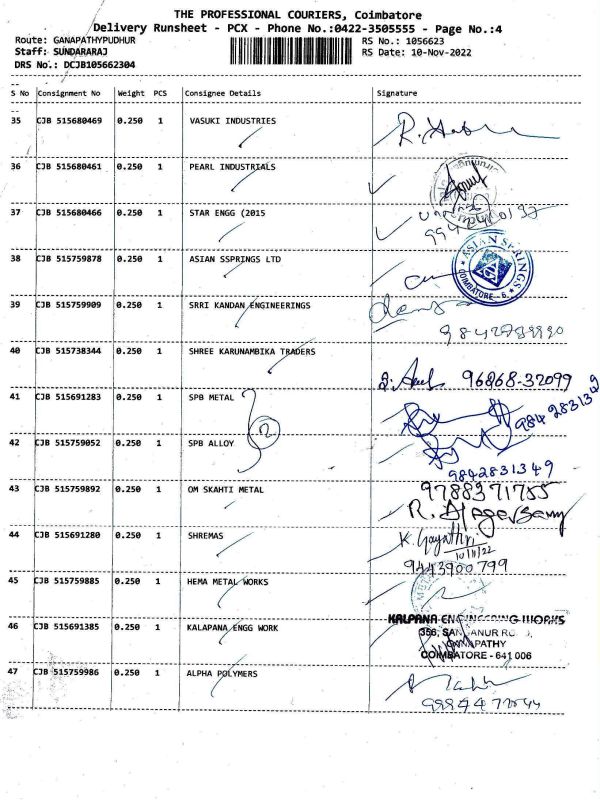 THE PROFESSIONAL COURIERS, Coimbatore
Delivery Runsheet - PCX - Phone No.:0422-3505555 - Page No.:4
Route: GANAPATHYPUDHUR RS No.: 1056623
Staff: SUNDARARAJ RS Date: 10-Nov-2022
DRS No.: DCJB105662304
S No Consignment No Weight PCS Consignee Details Signature
35 CJB 515680469 0.250 1 VASUKI INDUSTRIES
36 CJB 515680461 0.250 1 PEARL INDUSTRIALS
37 CJB 515680466 0.250 1 STAR ENGG (2015
38 CJB 515759878 0.250 1 ASIAN SSPRINGS LTD
ASIAN SPRINGS
COIMBATORE - 6.
39 CJB 515759909 0.250 1 SRRI KANDAN ENGINEERINGS
9842789990
40 CJB 515738344 0.250 1 SHREE KARUNAMBIKA TRADERS
96868-32099
41 CJB 515691283 0.250 1 SPB METAL
9842831349
2
42 CJB 515759052 0.250 1 SPB ALLOY
9842831349
43 CJB 515759892 0.250 1 OM SKAHTI METAL
9788371755
44 CJB 515691280 0.250 1 SHREMAS
K. Gayathri
10/11/22
9443900799
45 CJB 515759885 0.250 1 HEMA METAL WORKS
46 CJB 515691385 1 KALAPANA ENGG WORK
0.250
KALPANA ENGINEERING WORKS
GANAPATHY
COIMBATORE - 641 006
47 CJB 515759986 0.250 1 ALPHA POLYMERS